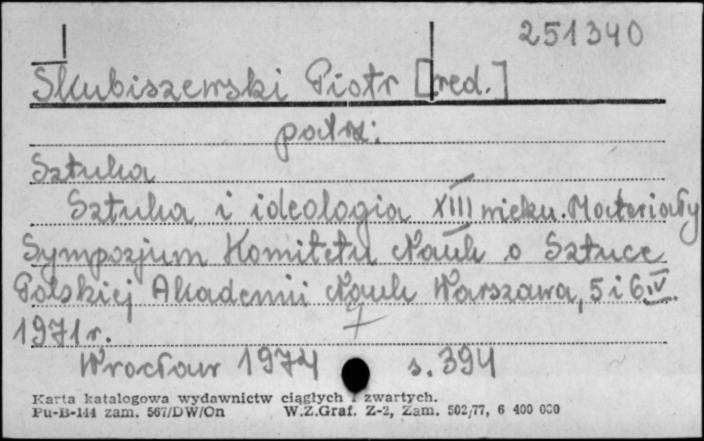 251340
Skubiszewski Piotr [red.]
patrz:
Sztuka
Sztuka i ideologia XIII wieku. Materiały
Sympozjum Komitetu Nauk o Sztuce
Polskiej Akademii Nauk Warszawa, 5 i 6 IV.
1971 r.
Wrocław 1974 s. 394
Karta katalogowa wydawnictw ciągłych i zwartych.
Pu-B-144 zam. 567/DW/On W.Z.Graf. Z-2, Zam. 502/77, 6 400 000